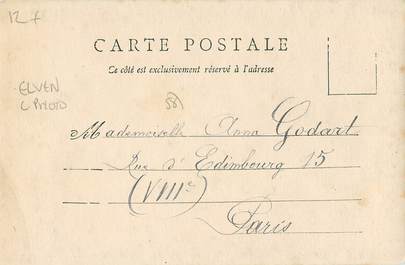 12 f
CARTE POSTALE
Ce côté est exclusivement réservé à l'adresse
ELVEN
C PHOTO
58
Mademoiselle Anna Godart
Rue d'Edimbourg 15
(VIIIe)
Paris